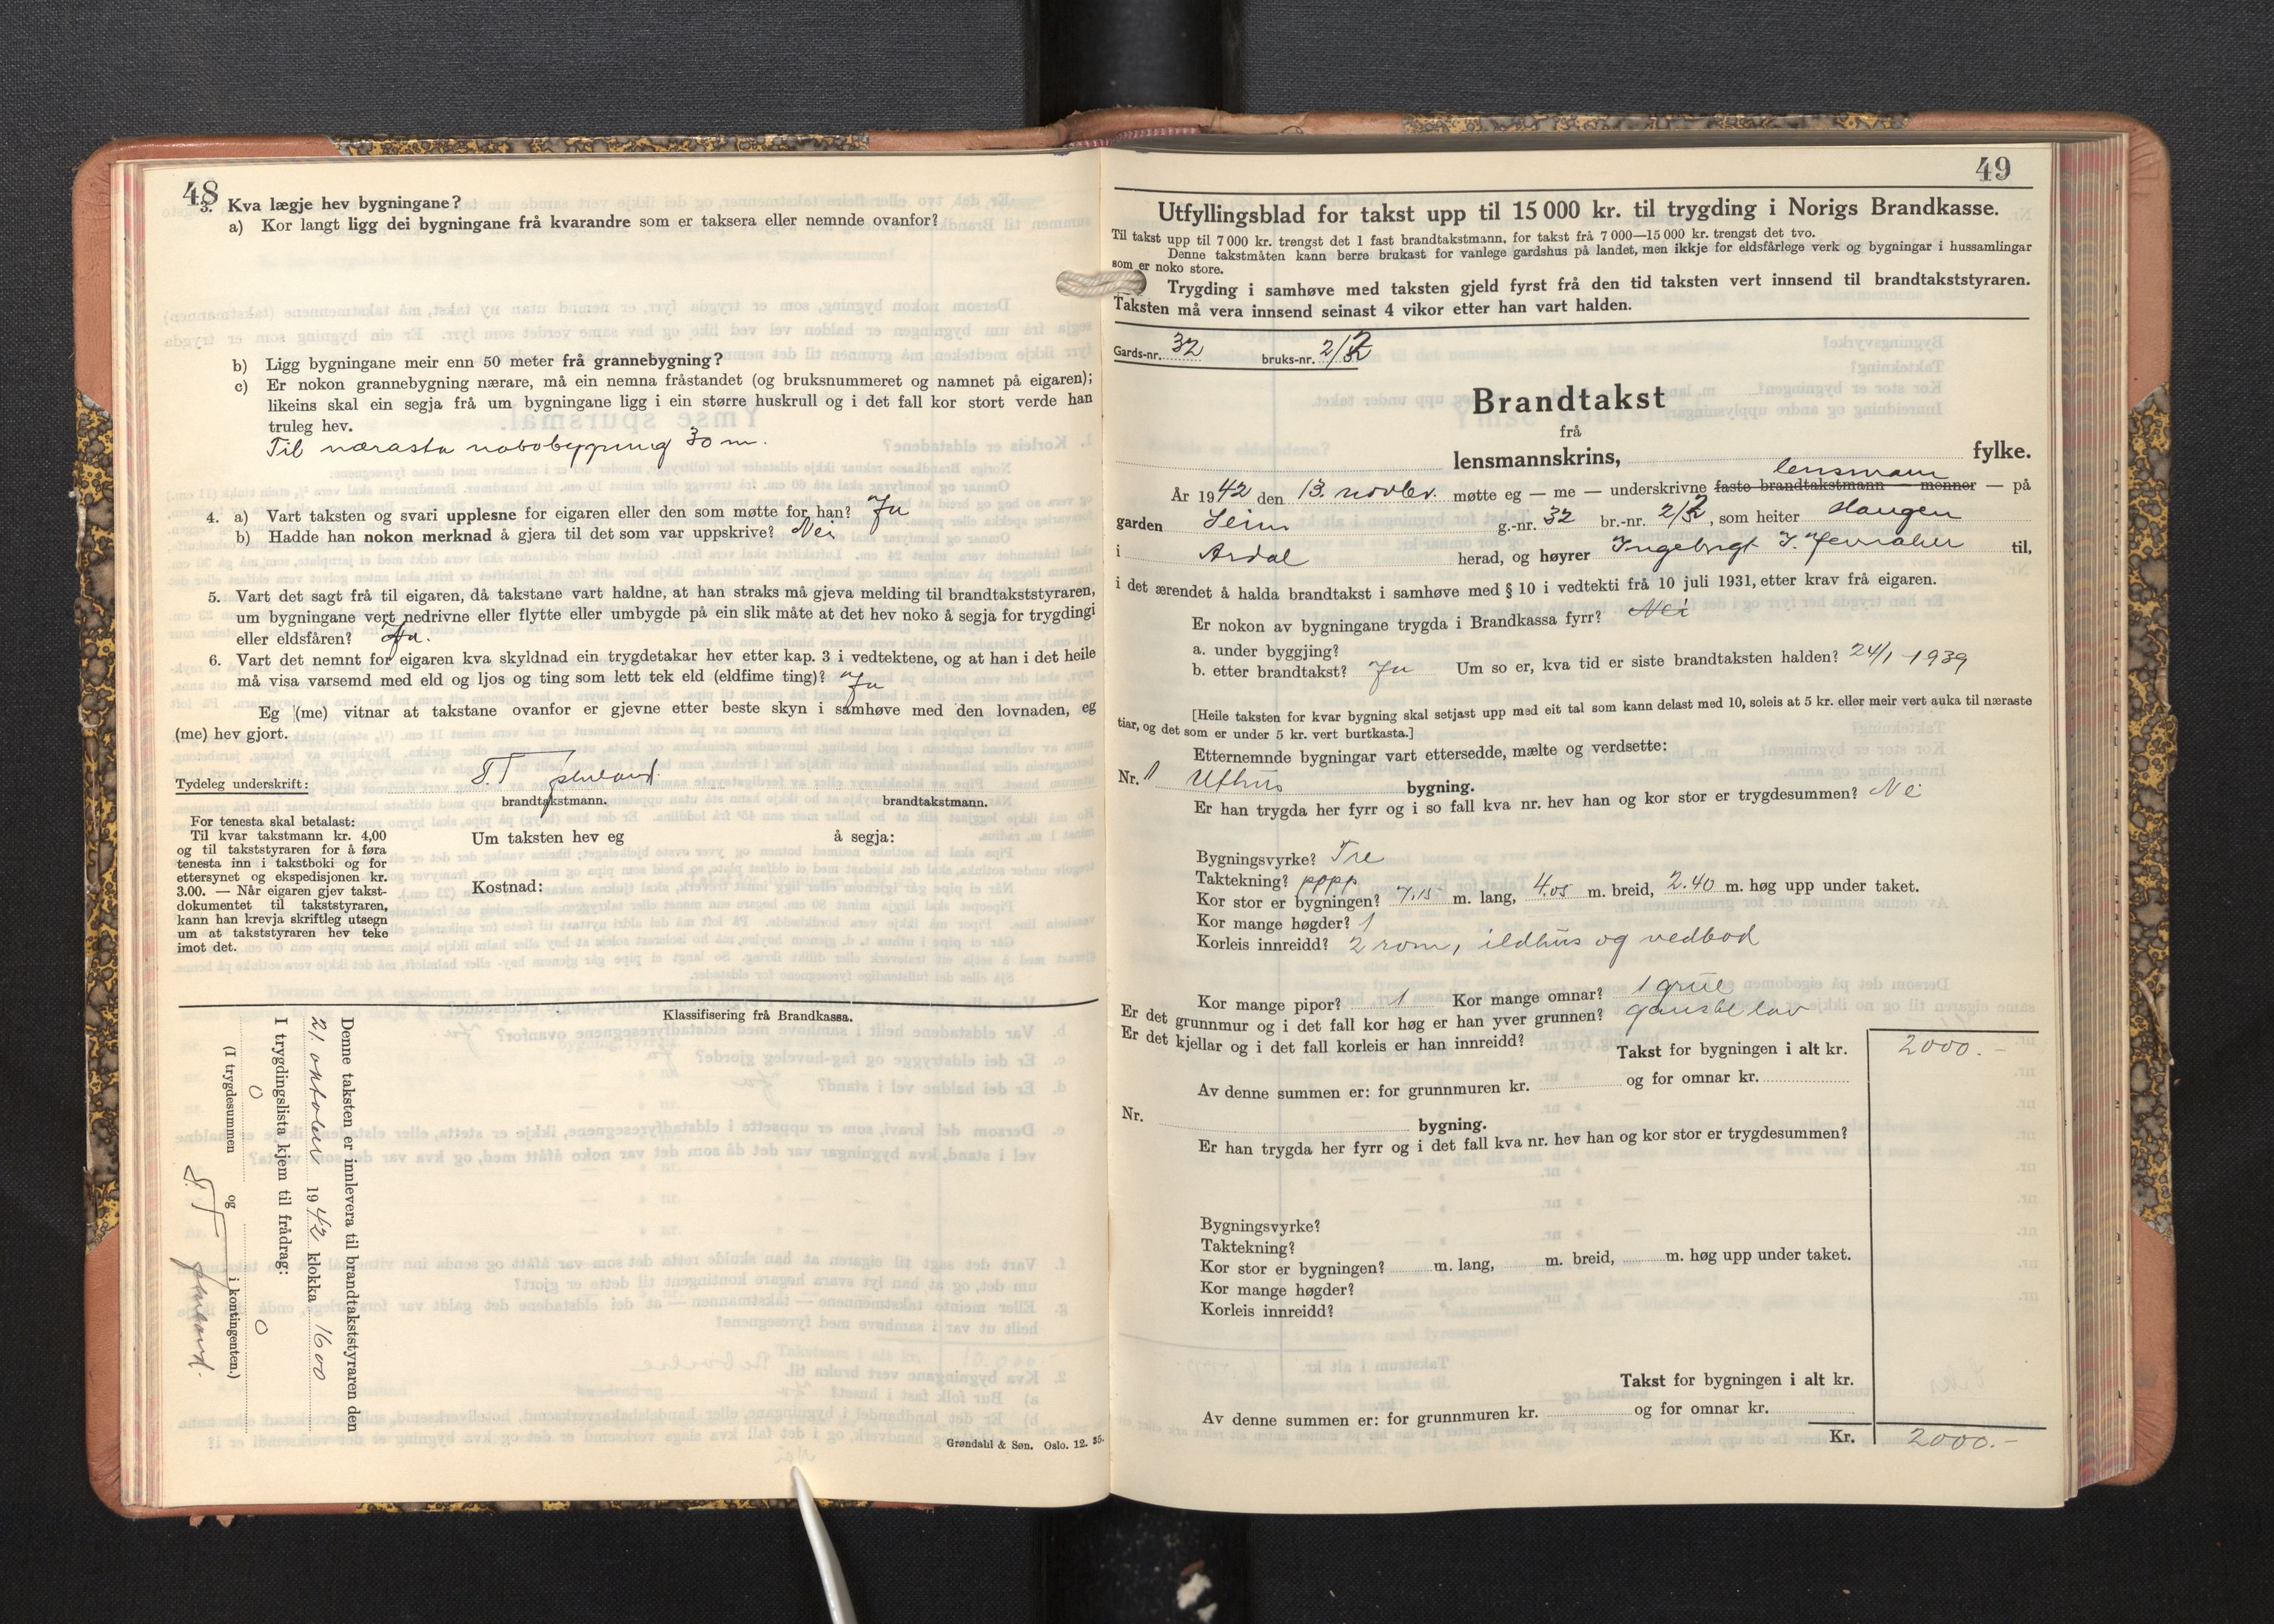 48
3. Kva lægje hev bygningane?
a) Kor langt ligg dei bygningane frå kvarandre som er taksera eller nemnde ovanfor?
b) Ligg bygningane meir enn 50 meter frå grannebygning?
c) Er nokon grannebygning nærare, må ein nemna fråstandet (og bruksnummeret og namnet på eigaren);
likeins skal ein segja frå um bygningane ligg i ein større huskrull og i det fall kor stort verde han
truleg hev.
Til nærasta nabobygning 30 m.
4. a) Vart taksten og svari upplesne for eigaren eller den som møtte for han? Ja
b) Hadde han nokon merknad å gjera til det som var uppskrive? Nei
5. Vart det sagt frå til eigaren, då takstane vart haldne, at han straks må gjeva melding til brandtakststyraren,
um bygningane vert nedrivne eller flytte eller umbygde på ein slik måte at det hev noko å segja for trygdingi
eller eldsfåren? Ja.
6. Vart det nemnt for eigaren kva skyldnad ein trygdetakar hev etter kap. 3 i vedtektene, og at han i det heile
må visa varsemd med eld og ljos og ting som lett tek eld (eldfime ting)? Ja
Eg (me) vitnar at takstane ovanfor er gjevne etter beste skyn i samhøve med den lovnaden, eg
(me) hev gjort.
Tydeleg underskrift:
brandtakstmann. brandtakstmann.
For tenesta skal betalast:
Til kvar takstmann kr. 4,00
og til takststyraren for å føra
tenesta inn i takstboki og for
ettersynet og ekspedisjonen kr.
3.00. — Når eigaren gjev takst-
dokumentet til takststyraren,
kann han krevja skriftleg utsegn
um at takststyraren hev teke
imot det.
Um taksten hev eg å segja:
Kostnad:
Klassifisering frå Brandkassa.
Denne taksten er innlevera til brandtakststyraren den
21. oktober 1942 klokka 1600
I trygdingslista kjem til frådrag:
0 0
(I trygdesummen og i kontingenten.)
Grøndahl & Søn. Oslo. 12. 35.
49
Utfyllingsblad for takst upp til 15 000 kr. til trygding i Norigs Brandkasse.
Til takst upp til 7 000 kr. trengst det 1 fast brandtakstmann, for takst frå 7 000—15 000 kr. trengst det tvo.
Denne takstmåten kann berre brukast for vanlege gardshus på landet, men ikkje for eldsfårlege verk og bygningar i hussamlingar
som er noko store.
Trygding i samhøve med taksten gjeld fyrst frå den tid taksten vert innsend til brandtakststyraren.
Taksten må vera innsend seinast 4 vikor etter han vart halden.
Gards-nr. 32 bruks-nr. 2/2
Brandtakst
frå
lensmannskrins, fylke.
lensmann
År 1942 den 13. novbr. møtte eg — me — underskrivne faste brandtakstmann — menner — på
garden Seim g.-nr. 32 br.-nr. 2/2, som heiter Haugen
i Årdal herad, og høyrer Ingeborgt J. til,
i det ærendet å halda brandtakst i samhøve med § 10 i vedtekti frå 10 juli 1931, etter krav frå eigaren.
Er nokon av bygningane trygda i Brandkassa fyrr? Nei
a. under byggjing?
b. etter brandtakst? Ja Um so er, kva tid er siste brandtaksten halden? 24/1 - 1939
[Heile taksten for kvar bygning skal setjast upp med eit tal som kann delast med 10, soleis at 5 kr. eller meir vert auka til næraste
tiar, og det som er under 5 kr. vert burtkasta.]
Etternemnde bygningar vart ettersedde, mælte og verdsette:
Nr. 1 Uthus bygning.
Er han trygda her fyrr og i so fall kva nr. hev han og kor stor er trygdesummen? Nei
Bygningsvyrke? Tre
Taktekning? papp
Kor stor er bygningen? 7,15 m. lang, 4.05 m. breid, 2.40 m. høg upp under taket.
Kor mange høgder? 1
Korleis innreidd? 2 rom, ildhus og vedbod
Kor mange pipor? 1 Kor mange omnar? 1 grue
Er det grunnmur og i det fall kor høg er han yver grunnen? ganske lav
Er det kjellar og i det fall korleis er han innreidd?
Takst for bygningen i alt kr. 2000.-
Av denne summen er: for grunnmuren kr. og for omnar kr.
Nr. bygning.
Er han trygda her fyrr og i det fall kva nr. hev han og kor stor er trygdesummen?
Bygningsvyrke?
Taktekning?
Kor stor er bygningen? m. lang, m. breid, m. høg upp under taket.
Kor mange høgder?
Korleis innreidd?
Takst for bygningen i alt kr.
Av denne summen er: for grunnmuren kr. og for omnar kr.
Kr. 2000.-